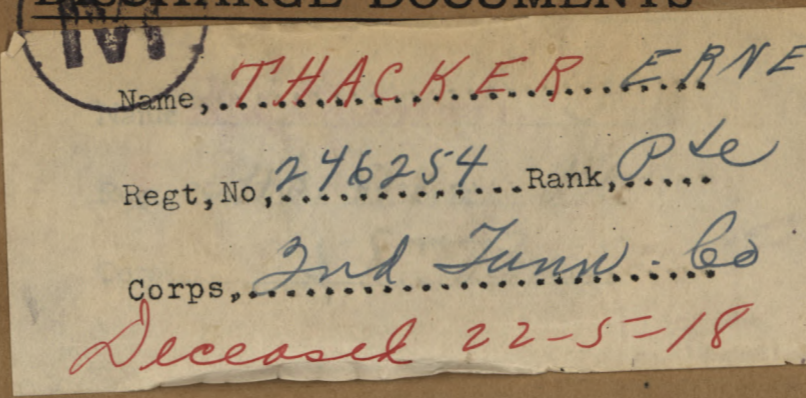 DISCHARGE DOCUMENTS
M
Name, THACKER ERNE
Regt, No, 246254 Rank, Pte
Corps, 2nd Tunn. Co
Deceased 22-5-18